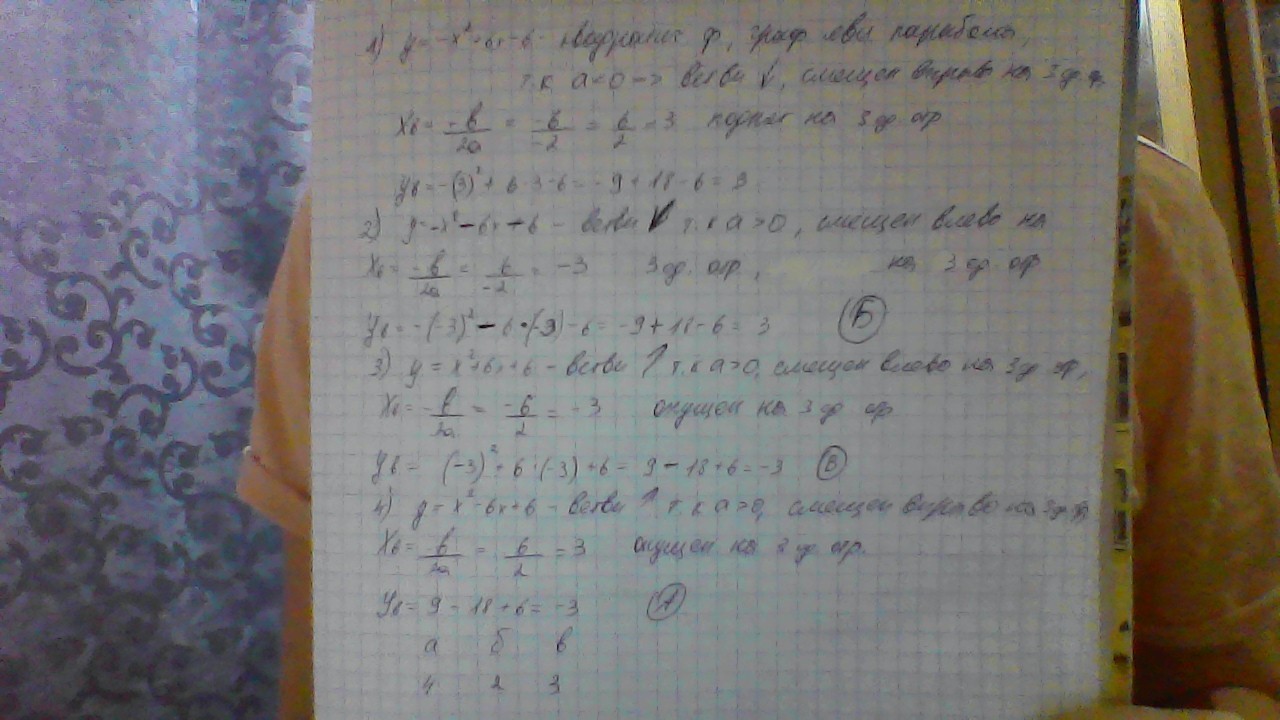 1) y = -x² + 6x - 6 - квадратич ф, граф явл парабола,
т.к a < 0 -> ветви ↓, смещен вправо на 3 ед. от.
Xв = -b/2a = -6/-2 = 6/2 = 3 поднят на 3 ед отр
Yв = -(3)² + 6·3 - 6 = -9 + 18 - 6 = 3
2) y = -x² - 6x - 6 - ветви ↓ т.к a > 0, смещен влево на
Xв = -b/2a = 6/-2 = -3 3 ед. отр, на 3 ед. отр
Yв = -(-3)² - 6·(-3) - 6 = -9 + 18 - 6 = 3 Б
3) y = x² + 6x + 6 - ветви ↑ т.к a > 0, смещен влево на 3 ед отр,
Xв = -b/2a = -6/2 = -3 опущен на 3 ед отр
Yв = (-3)² + 6·(-3) + 6 = 9 - 18 + 6 = -3 В
4) y = x² - 6x + 6 - ветви ↑ т.к a > 0, смещен вправо на 3 ед,
Xв = b/2a = 6/2 = 3 опущен на 3 ед отр.
Yв = 9 - 18 + 6 = -3 А
а б в
4 2 3